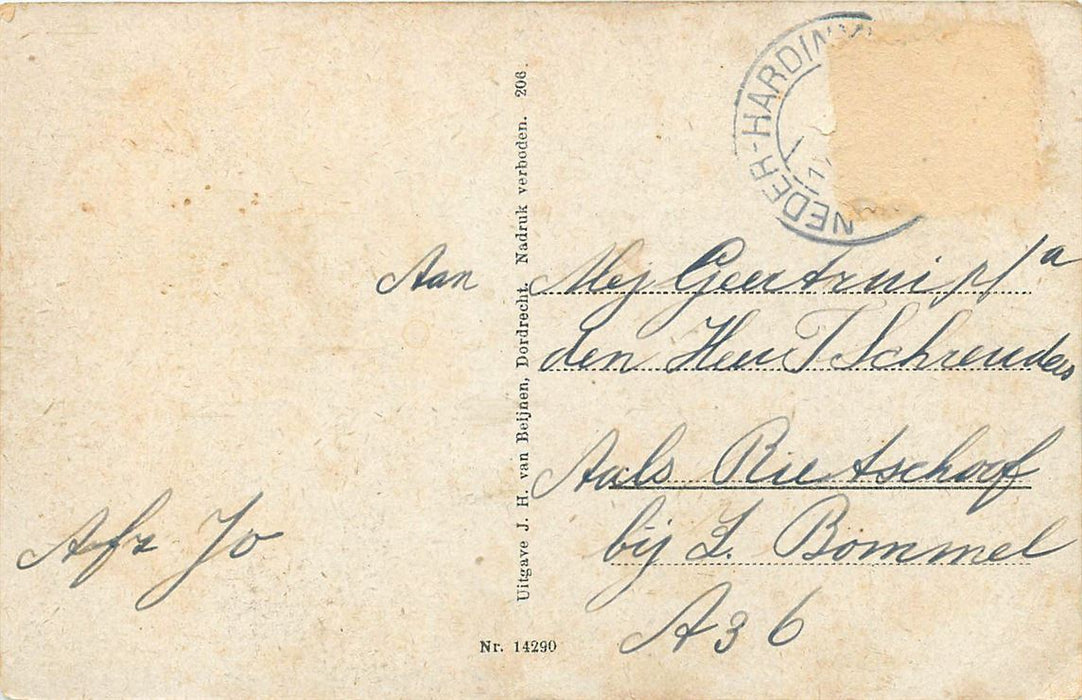 NEDER-HARDIN
Aan Mej Geertrui p/a
den Heer T Schreuders
Aals Rietschoof
bij Z. Bommel
A 36
Afz Jo
Uitgave J. H. van Beijnen, Dordrecht. Nadruk verboden. 206.
Nr. 14290